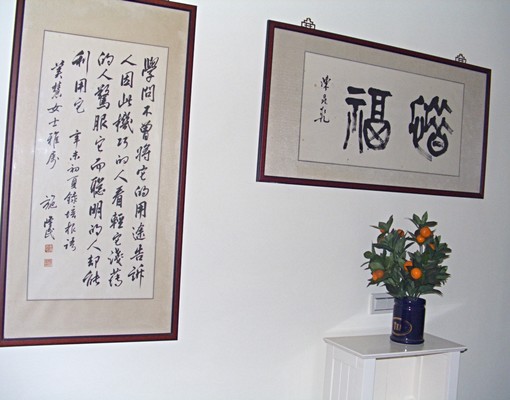 學問不曾將它的用途告訴
人因此機巧的人看輕它淺薄
的人驚服它而聰明的人却能
利用它 辛未初夏錄培根語
慧女士雅屬 施隆民
惜福